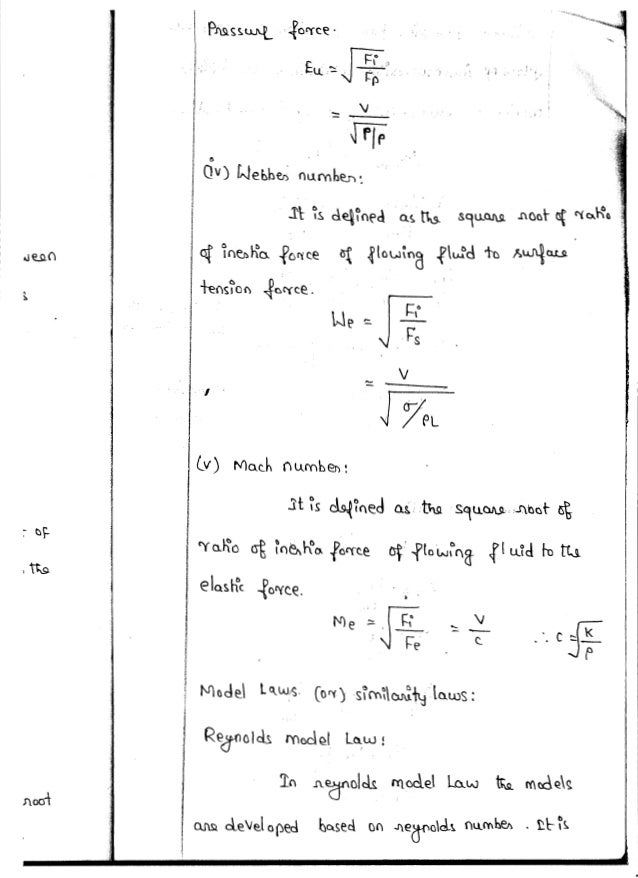 Pressure force.
Eu = √(Fi/Fp)
= V/√(P/ρ)
(iv) Webber number:
It is defined as the square root of ratio
of inertia force of flowing fluid to surface
tension force.
We = √(Fi/Fs)
= V/√(σ/ρL)
(v) Mach number:
It is defined as the square root of
ratio of inertia force of flowing fluid to the
elastic force.
Me = √(Fi/Fe) = V/C ∴ C = √(K/ρ)
Model Laws (or) similarity laws:
Reynolds model Law:
In reynolds model Law the models
are developed based on reynolds number. It is
ween
s
of
the
root